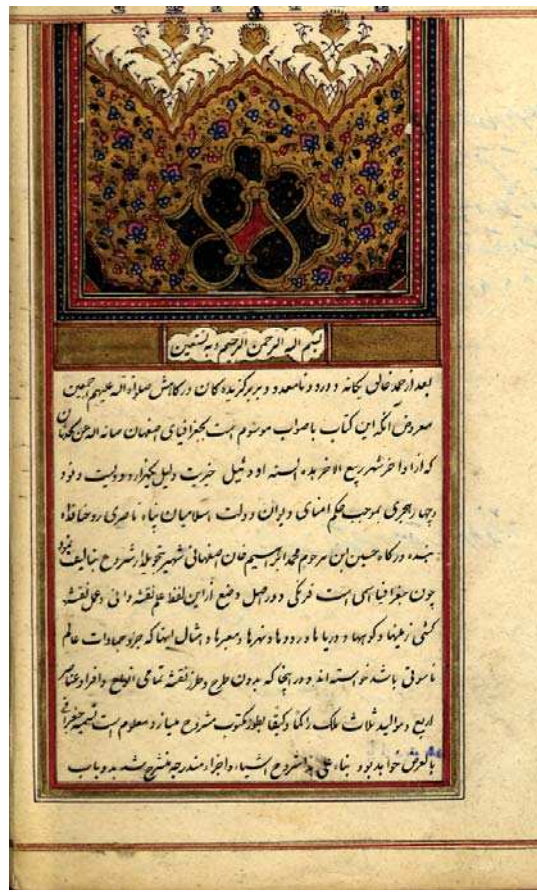 بسم الله الرحمن الرحیم و به نستعین
بعد از حمد خالق یگانه و درود نامعدود بر برگزیده کان درگاهش صلواة الله علیهم اجمعین
معروض آنکه این کتاب باصواب موسوم است بجغرافیای اصفهان صانه الله عن
که از اواخر شهر ربیع الاخر بده السنه اودئیل خیریت دلیل یکهزار و دویست و نود
و چهار هجری بموجب حکم امنای دیوان دولت اسلامیان پناه ناصری روحنا فداه
بنده درگاه حسین ابن مرحوم محمد ابراهیم خان اصفهانی شهیر بتحویلدار شروع بتالیف نمود
چون جغرافیا اسمی است فرنگی و در اصل وضع از این لفظ علم نقشه دانی و عمل نقشه
کشی زمینها و کوهها و دریاها و رودها و نهرها و معبرها و امثال اینها که جزو جمادات عالم
ناسوتی باشد خواسته اند و در اینجا که بدون طرح و طرز نقشه تمامی انواع و افراد عناصر
اربع و موالید ثلاث ملک را کما و کیفا بطور مکتوب مشروح میسازد معلوم است تسمیه جغرافی
بالعرض خواهد بود بناء علی هذا شروح اشیاء و اجزاء مندرجه منشرح شد بدو باب